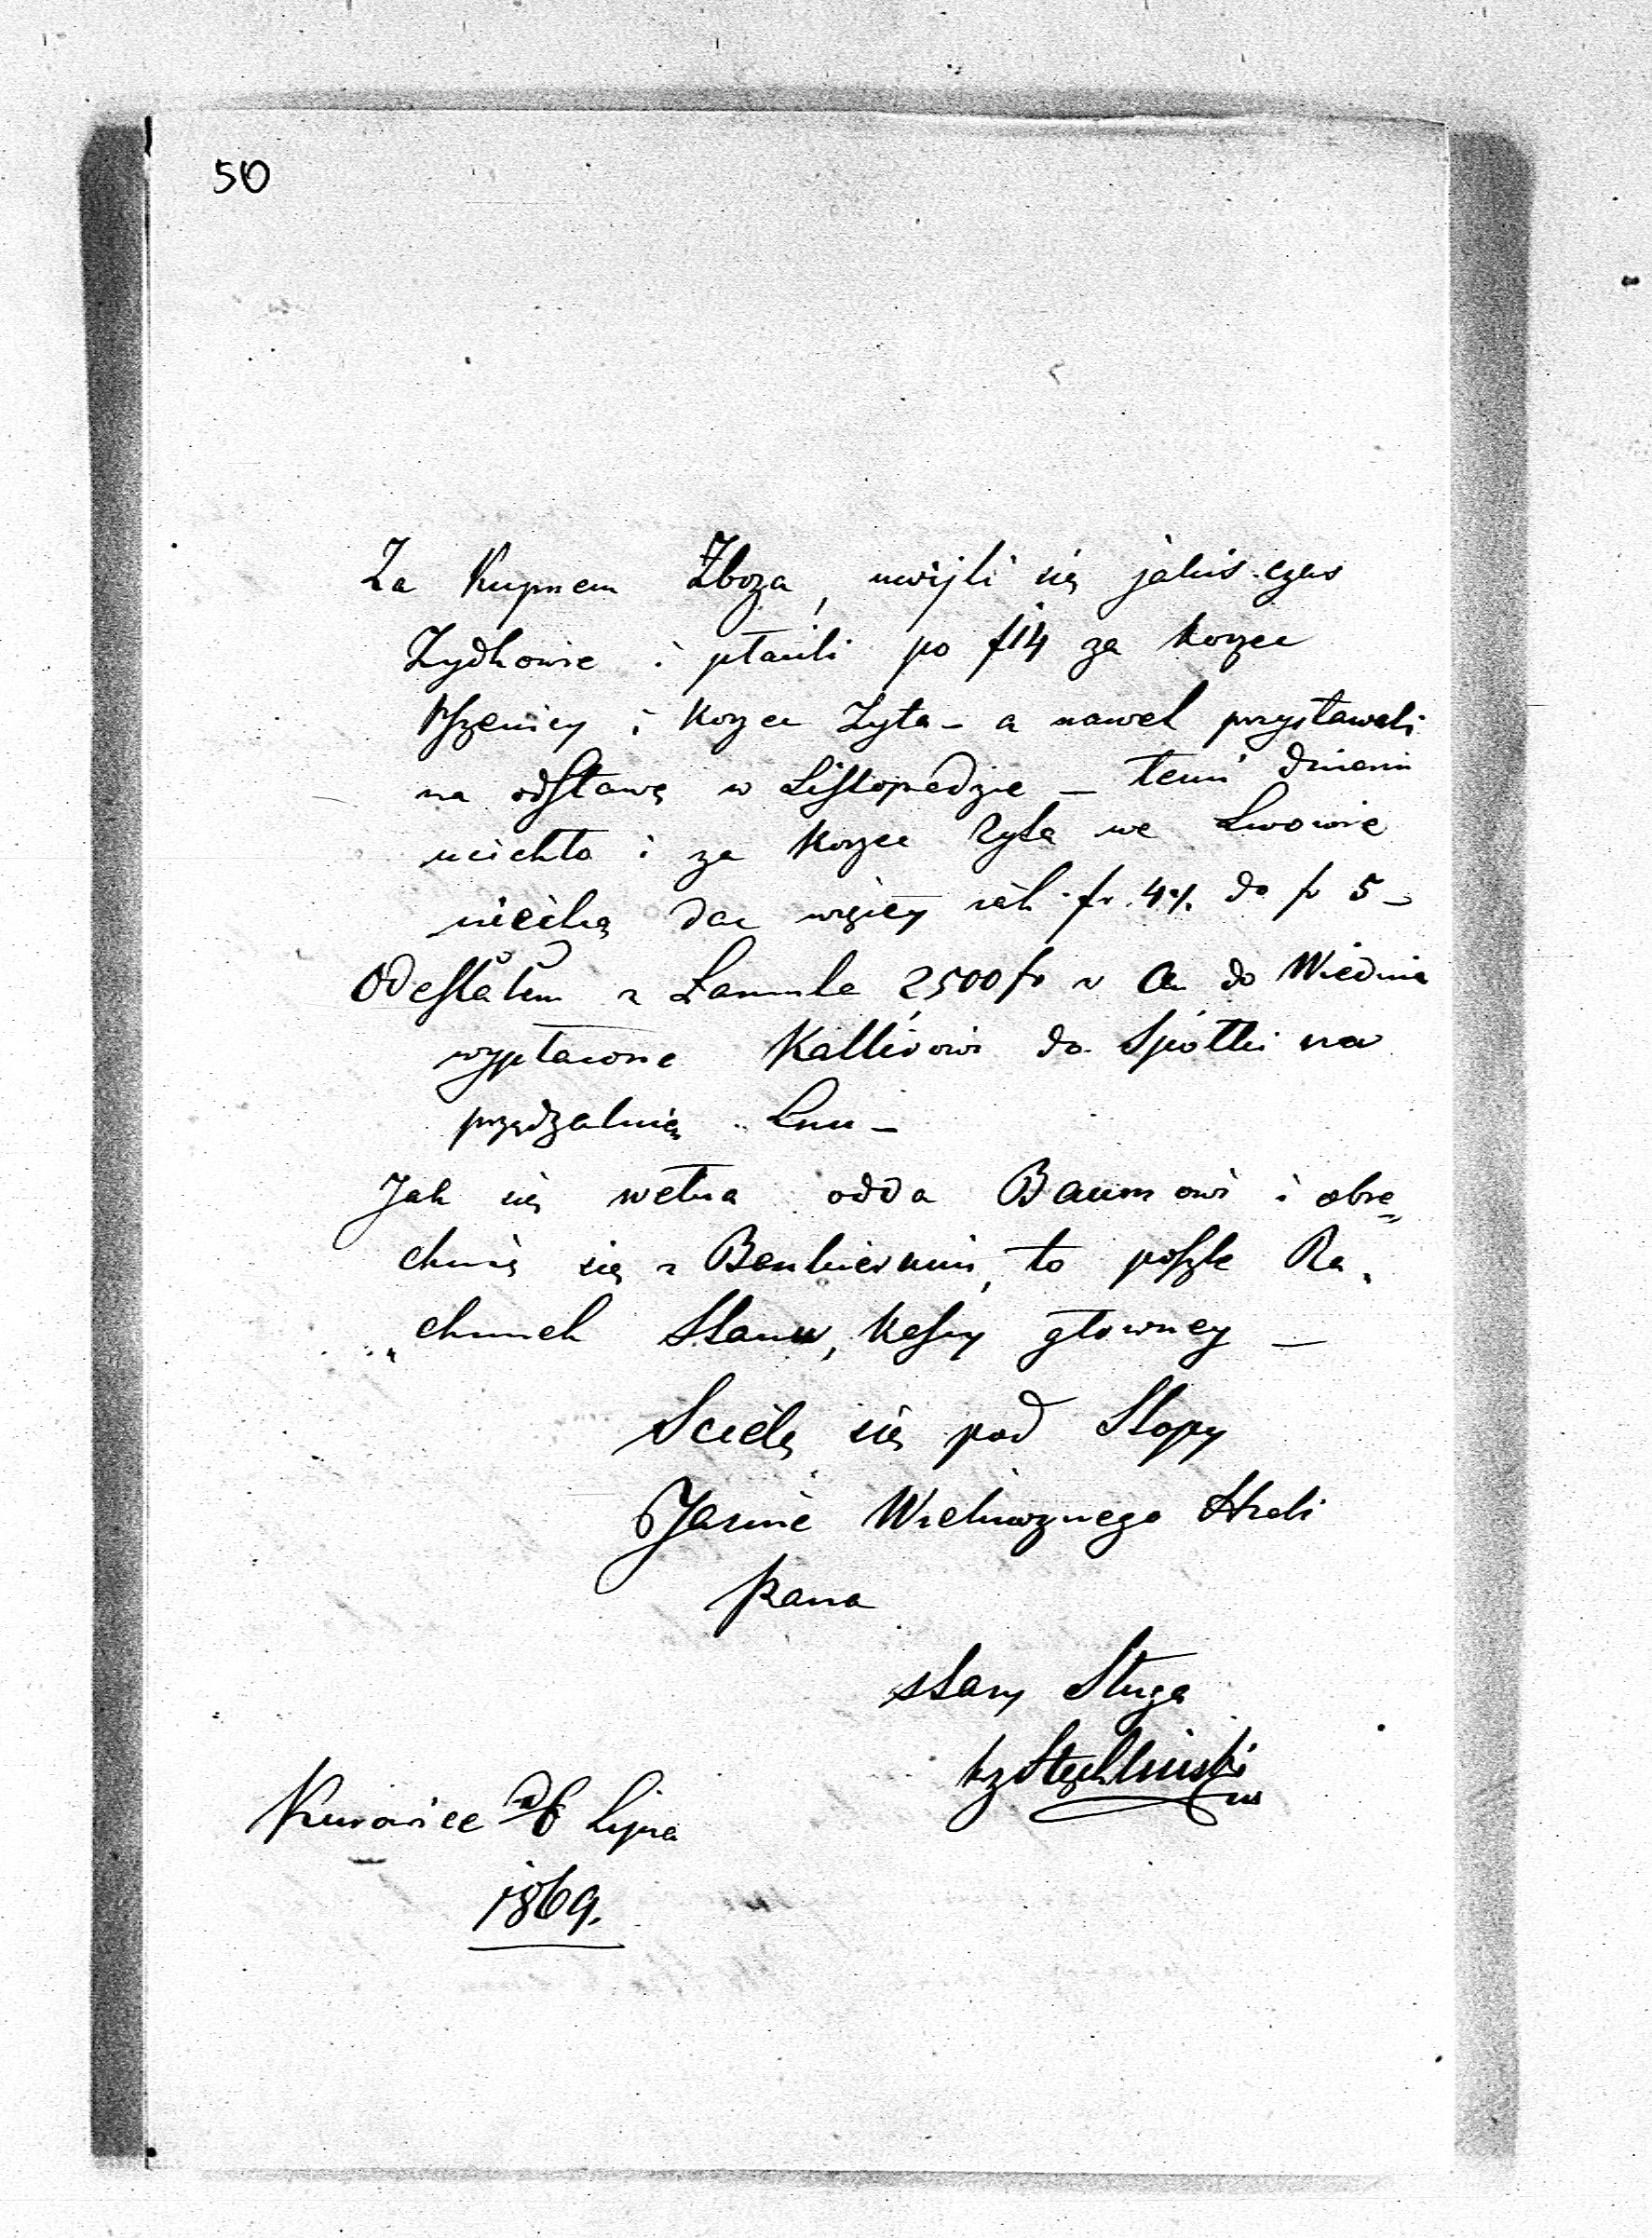 50
Za Kupnem Zboża, uwijli się jakiś czas
Zydkowie i płacili po f 14 za Korzec
Pszenicy i Korzec Zyta – a nawet przystawali
na odstawę w Listopadzie – temi dniami
ucichło i za Korzec Zyta we Lwowie
niechcą dac więcey jak fr 4 do fr 5 –
Odesłałem z Łańcuta 2500 fr w a. do Wiednia
wypłacone Kallirowi do Spółki na
przędzalnię Lnu –
Jak się wełna odda Baumowi i obra
chuię się z Bankierami, to poszlę Ra
chunek Stanu, Kassy głowney –
Scielę się pod Stopy
Jaśnie Wielmożnego Hrabi
Pana
stary Sługa
Kurowice 26 Lipca
1869.